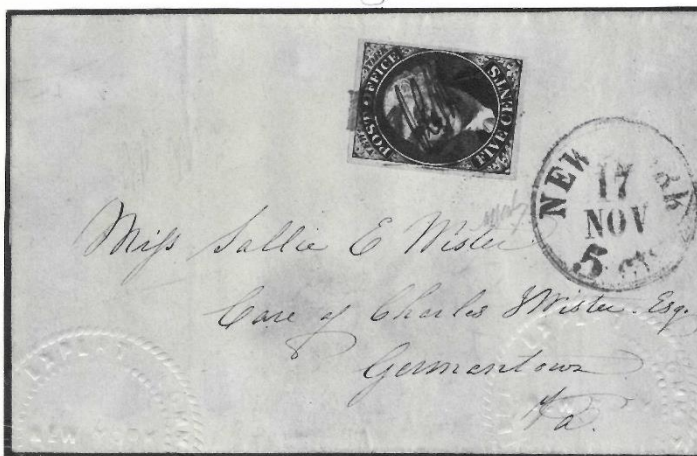 POST OFFICE
FIVE CENTS
NEW YORK
17
NOV
5 cts
Miſs Sallie E Wister
Care of Charles J Wister. Esq.
Germantown
Pa.
NEW YORK